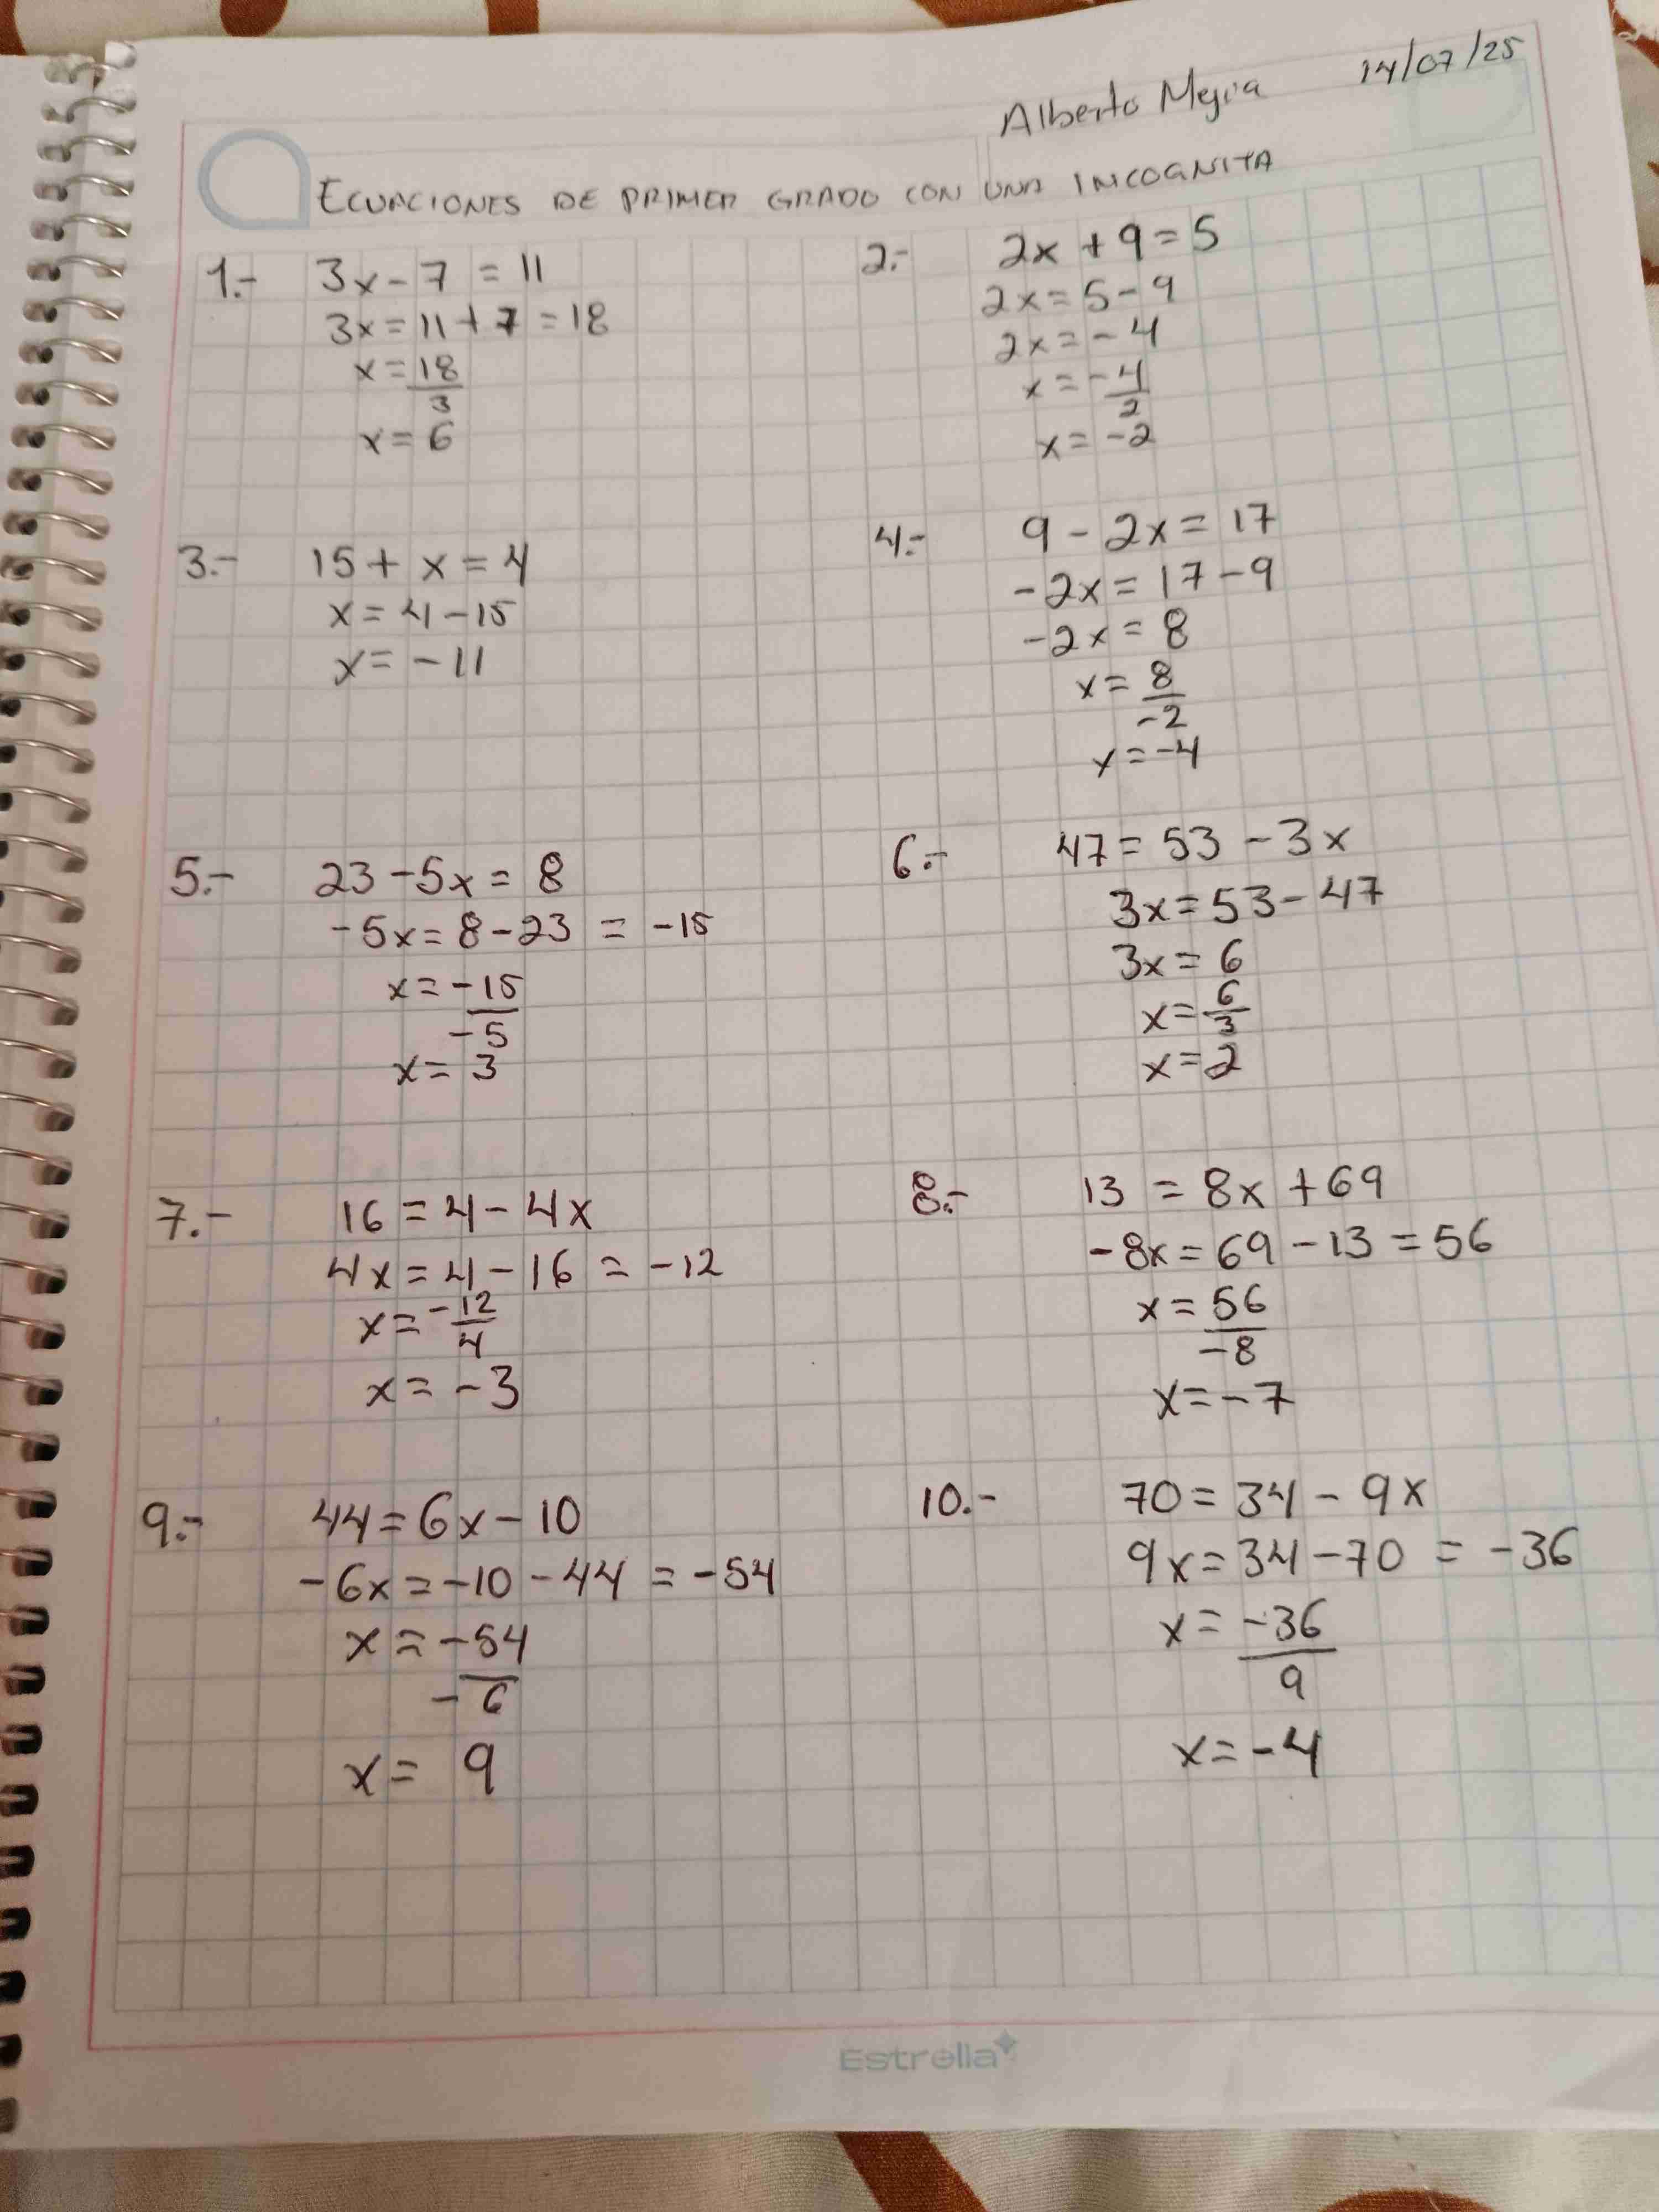 Alberto Mejia 14/07/25
ECUACIONES DE PRIMER GRADO CON UNA INCOGNITA
1.- 3x - 7 = 11
3x = 11 + 7 = 18
x = 18
3
x = 6
2.- 2x + 9 = 5
2x = 5 - 9
2x = - 4
x = - 4
2
x = -2
3.- 15 + x = 4
x = 4 - 15
x = - 11
4.- 9 - 2x = 17
-2x = 17 - 9
-2x = 8
x = 8
-2
x = -4
5.- 23 - 5x = 8
-5x = 8 - 23 = -15
x = -15
-5
x = 3
6.- 47 = 53 - 3x
3x = 53 - 47
3x = 6
x = 6
3
x = 2
7.- 16 = 4 - 4x
4x = 4 - 16 = -12
x = -12
4
x = -3
8.- 13 = 8x + 69
-8x = 69 - 13 = 56
x = 56
-8
x = -7
9.- 44 = 6x - 10
-6x = -10 - 44 = -54
x = -54
-6
x = 9
10.- 70 = 34 - 9x
9x = 34 - 70 = -36
x = -36
9
x = -4
Estrella